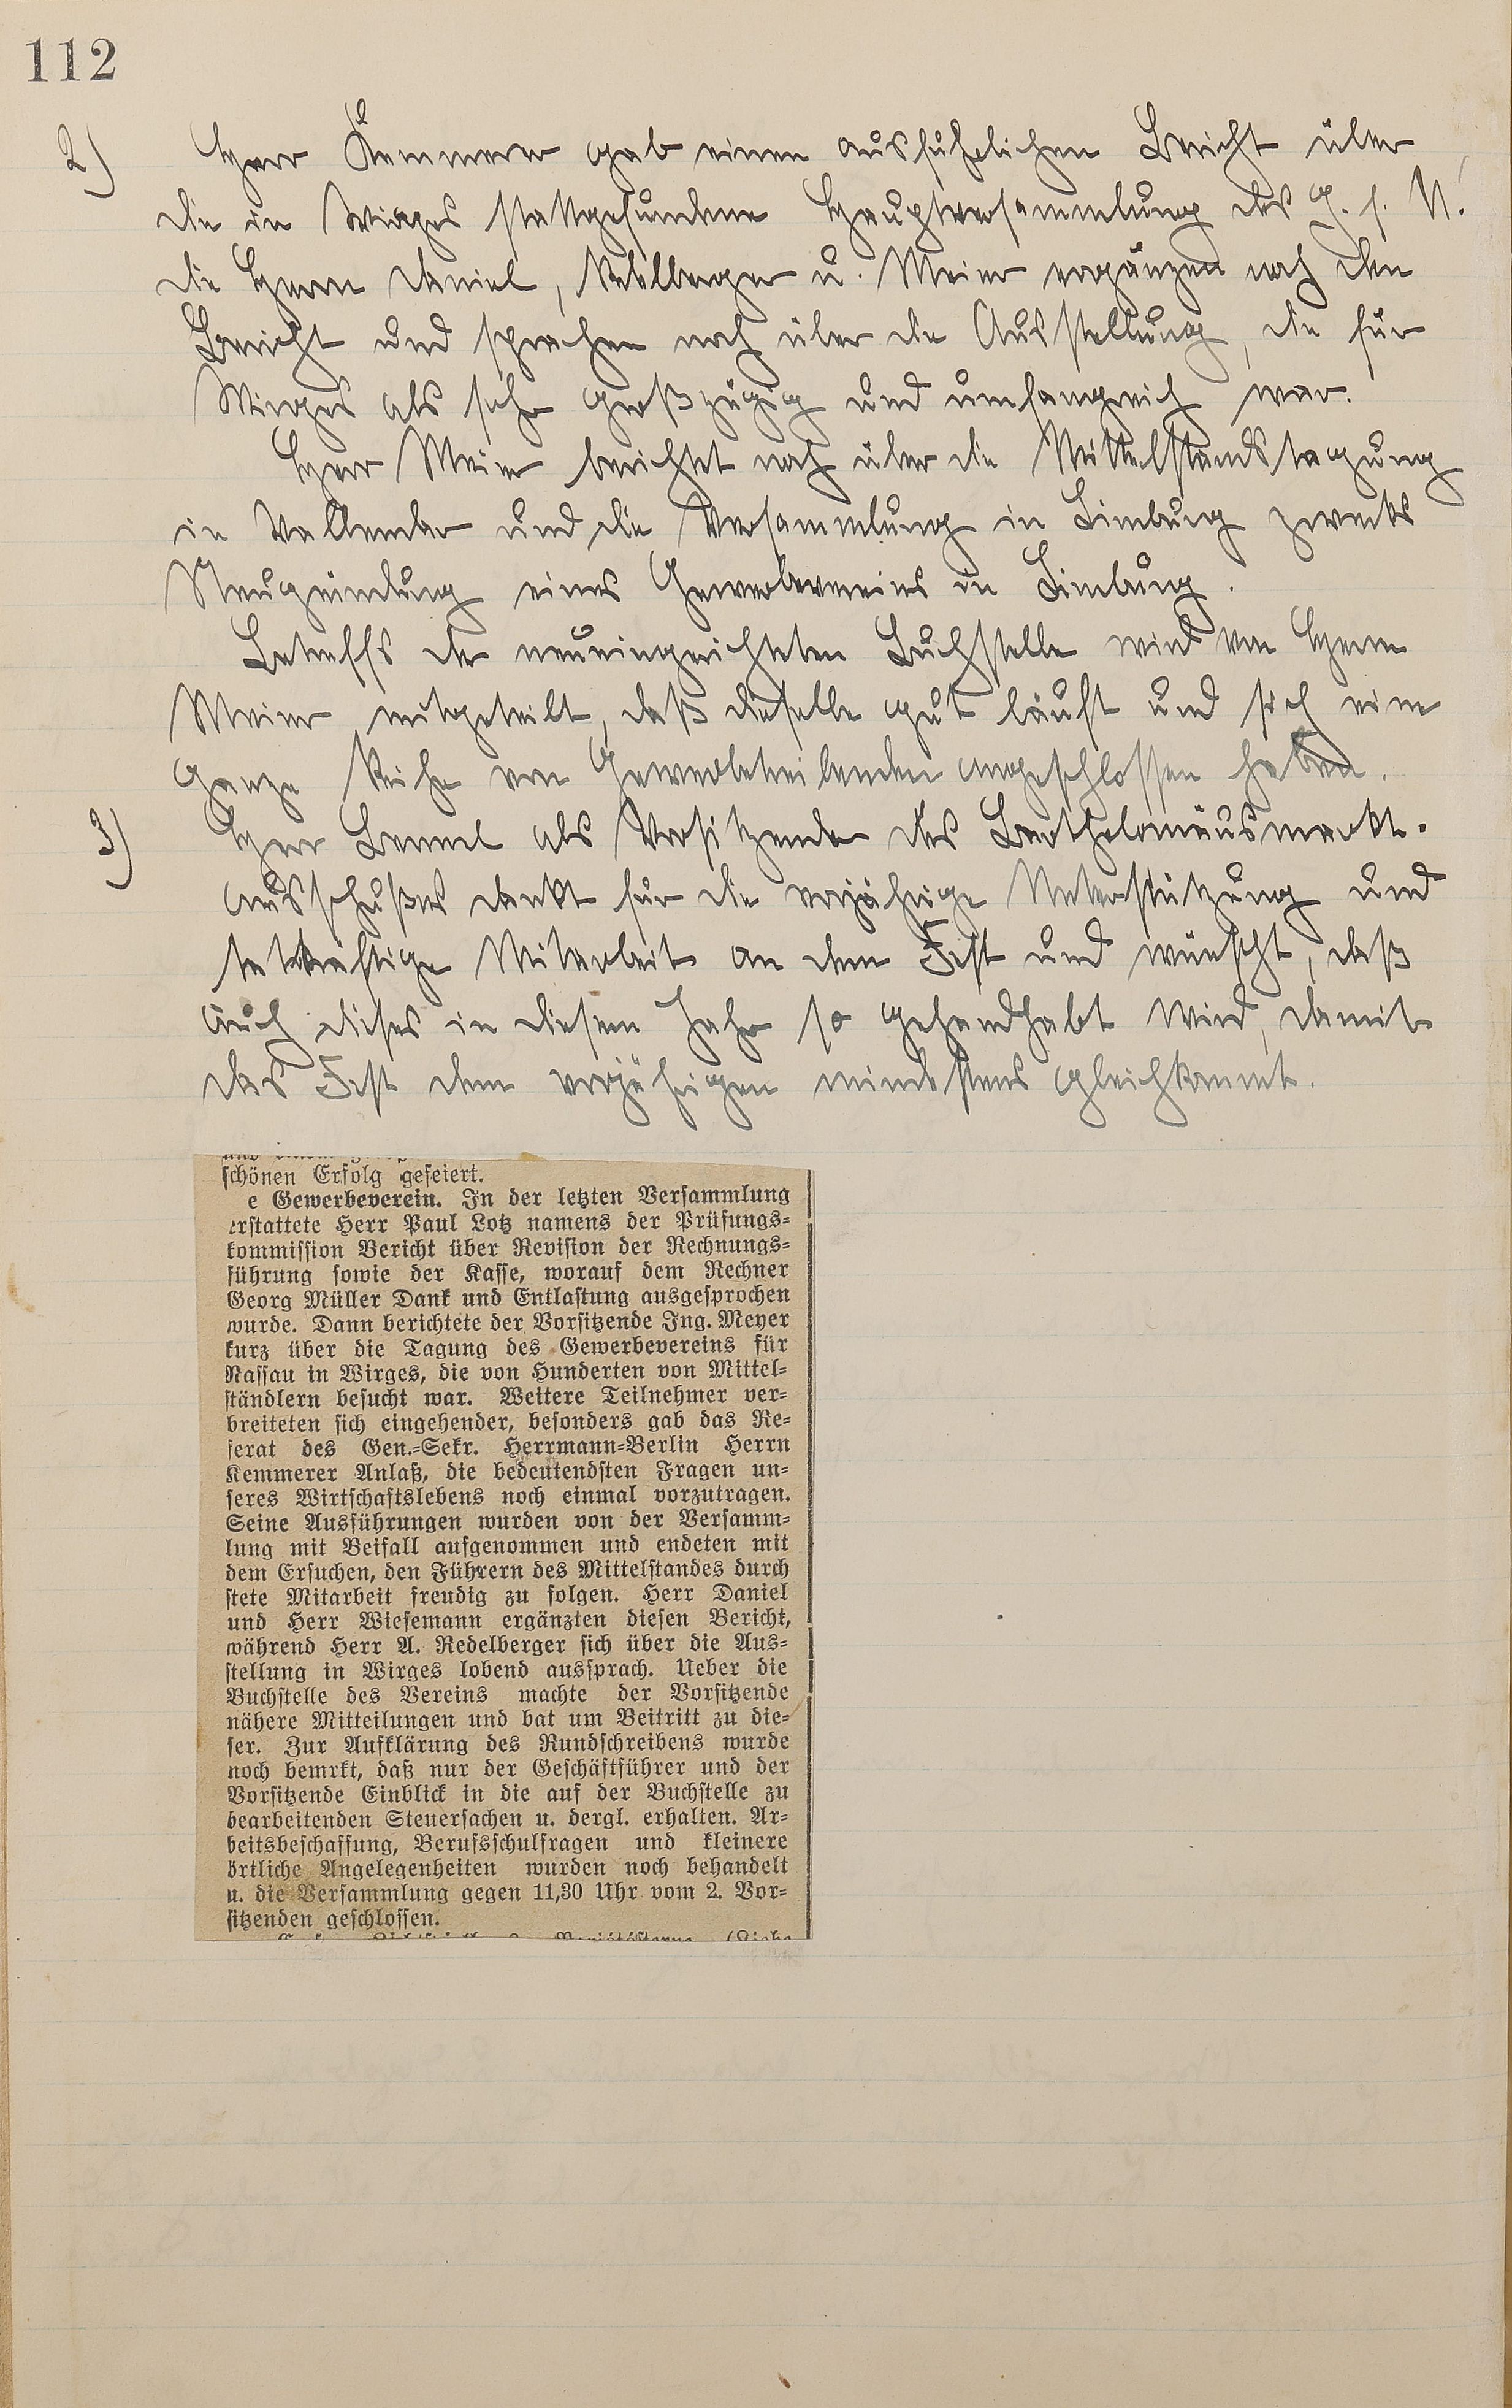 112
2) Herr Kemmerer gab einen ausführlichen Bericht über
die in Wirges stattgefundene Hauptversammlung des G. f. N.
die Herrn Daniel, Redlberger u. Meier ergänzen noch den
Bericht und sprachen noch über die Ausstellung, die für
Wirges als sehr großzügig und umfangreich war.
Herr Meier berichtet noch über die Mittelstandstagung
in Vallendar und die Versammlung in Limburg zwecks
Neugründung eines Gewerbevereins in Limburg.
Betreffs der neueingerichteten Buchstelle wird von Herrn
Meier mitgeteilt, daß dieselbe gut läuft und sich eine
ganze Reihe von Gewerbetreibenden angeschlossen haben.
3) Herr als Vorsitzender des Bartholomäusmarkt-
ausschußes dankt für die vorjährige Unterstützung und
tatkräftige Mitarbeit an dem Fest und wünscht, daß
auch dieses in diesem Jahr so gehandhabt wird, damit
das Fest dem vorjährigen mindestens gleichkommt.
schönen Erfolg gefeiert.
e Gewerbeverein. In der letzten Versammlung
erstattete Herr Paul Lotz namens der Prüfungs-
kommission Bericht über Revision der Rechnungs-
führung sowie der Kasse, worauf dem Rechner
Georg Müller Dank und Entlastung ausgesprochen
wurde. Dann berichtete der Vorsitzende Ing. Meyer
kurz über die Tagung des Gewerbevereins für
Nassau in Wirges, die von Hunderten von Mittel-
ständlern besucht war. Weitere Teilnehmer ver-
breiteten sich eingehender, besonders gab das Re-
ferat des Gen.-Sekr. Herrmann-Berlin Herrn
Kemmerer Anlaß, die bedeutendsten Fragen un-
seres Wirtschaftslebens noch einmal vorzutragen.
Seine Ausführungen wurden von der Versamm-
lung mit Beifall aufgenommen und endeten mit
dem Ersuchen, den Führern des Mittelstandes durch
stete Mitarbeit freudig zu folgen. Herr Daniel
und Herr Wiesemann ergänzten diesen Bericht,
während Herr A. Redelberger sich über die Aus-
stellung in Wirges lobend aussprach. Ueber die
Buchstelle des Vereins machte der Vorsitzende
nähere Mitteilungen und bat um Beitritt zu die-
ser. Zur Aufklärung des Rundschreibens wurde
noch bemrkt, daß nur der Geschäftführer und der
Vorsitzende Einblick in die auf der Buchstelle zu
bearbeitenden Steuersachen u. dergl. erhalten. Ar-
beitsbeschaffung, Berufsschulfragen und kleinere
örtliche Angelegenheiten wurden noch behandelt
u. die Versammlung gegen 11,30 Uhr vom 2. Vor-
sitzenden geschlossen.